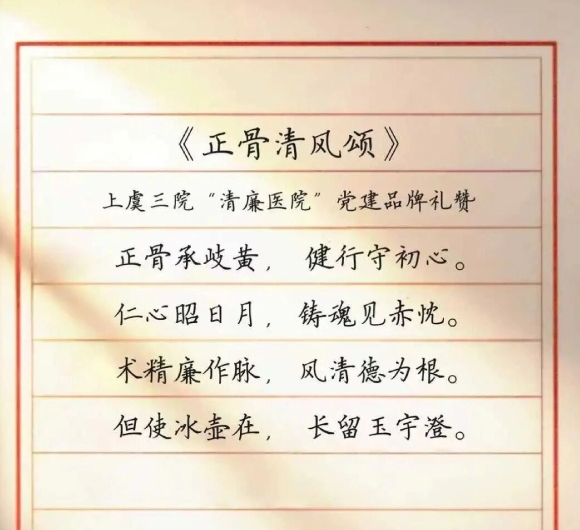 《正骨清风颂》
上虞三院“清廉医院”党建品牌礼赞
正骨承歧黄， 健行守初心。
仁心昭日月， 铸魂见赤忱。
术精廉作脉， 风清德为根。
但使冰壶在， 长留玉宇澄。